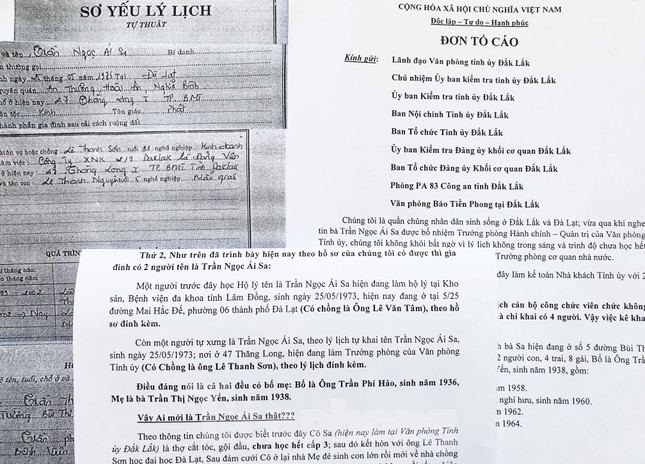 SƠ YẾU LÝ LỊCH
TỰ THUẬT
và tên Trần Ngọc Ái Sa Bí danh
thường gọi
tháng 5 năm 1975 Tại Đà Lạt
quán Ân Thường, Hoài Ân, Nghĩa Bình
ở hiện nay 47 Thăng Long I TP. BMT
tộc Kinh Tôn giáo Phật
thành phần gia đình sau cải cách ruộng đất
vợ hoặc chồng Lê Thanh Sơn tuổi 31 nghề nghiệp Kinh doanh
làm việc Công Ty XNK 2/9 Daklak là Đảng Viên
ở hiện nay 47 Thăng Long I TP. BMT Tỉnh Daklak
và tên con Lê Thanh Nguyên tuổi 5 nghề nghiệp Mẫu giáo
QUÁ TRÌN
CỘNG HÒA XÃ HỘI CHỦ NGHĨA VIỆT NAM
Độc lập – Tự do – Hạnh phúc
ĐƠN TỐ CÁO
Kính gửi: Lãnh đạo Văn phòng tỉnh ủy Đắk Lắk
Chủ nhiệm Ủy ban kiểm tra tỉnh ủy Đắk Lắk
Ủy ban Kiểm tra tỉnh ủy Đắk Lắk
Ban Nội chính Tỉnh ủy Đắk Lắk
Ban Tổ chức Tỉnh ủy Đắk Lắk
Ủy ban Kiểm tra Đảng ủy Khối cơ quan Đắk Lắk
Ban Tổ chức Đảng ủy Khối cơ quan Đắk Lắk
Phòng PA 83 Công an tỉnh Đắk Lắk
Văn phòng Báo Tiền Phong tại Đắk Lắk
Chúng tôi là quần chúng nhân dân sinh sống ở Đắk Lắk và Đà Lạt; vừa qua khi nghe
tin bà Trần Ngọc Ái Sa được bổ nhiệm Trưởng phòng Hành chính – Quản trị của Văn phòng
Tỉnh ủy, chúng tôi không khỏi bất ngờ vì lý lịch không trong sáng và trình độ chưa học hết
Trưởng phòng cơ quan nhà nước.
đây làm kế toán Nhà khách Tỉnh ủy với 2
lịch cán bộ công chức viên chức không
à chỉ khai có 4 người. Vậy việc kê khai
h bà Sa hiện đang ở số 5 đường Bùi Th
2 người con, 4 trai, 8 gái, Bố là Ông Trầ
n, sinh năm 1938, gồm:
am 1958.
nghỉ hưu, sinh năm 1960.
m 1962.
m 1964.
Thứ 2, Như trên đã trình bày hiện nay theo hồ sơ của chúng tôi có được thì gia
đình có 2 người tên là Trần Ngọc Ái Sa:
Một người trước đây học Hộ lý tên là Trần Ngọc Ái Sa hiện đang làm hộ lý tại Kho
sản, Bệnh viện đa khoa tỉnh Lâm Đồng, sinh ngày 25/05/1973, hiện nay đang ở tại 5/25
đường Mai Hắc Đế, phường 06 thành phố Đà Lạt (Có chồng là Ông Lê Văn Tâm), theo hồ
sơ đính kèm.
Còn một người tự xưng là Trần Ngọc Ái Sa, theo lý lịch tự khai tên Trần Ngọc Ái Sa,
sinh ngày 25/05/1973; nơi ở 47 Thăng Long, hiện đang làm Trưởng phòng của Văn phòng
Tỉnh ủy (Có Chồng là ông Lê Thanh Sơn), theo lý lịch đính kèm.
Điều đáng nói là cả hai đều có bố mẹ: Bố là Ông Trần Phi Hảo, sinh năm 1936,
Mẹ là bà Trần Thị Ngọc Yến, sinh năm 1938.
Vậy Ai mới là Trần Ngọc Ái Sa thật???
Theo thông tin chúng tôi được biết trước đây Cô Sa (hiện nay làm tại Văn phòng Tỉnh
ủy Đắk Lắk) là thợ cắt tóc, gội đầu, chưa học hết cấp 3; sau đó kết hôn với ông Lê Thanh
Sơn học đại học Đà Lạt, Sau đám cưới Cô ở lại nhà Mẹ đẻ sinh con lớn rồi mới về nhà chồng